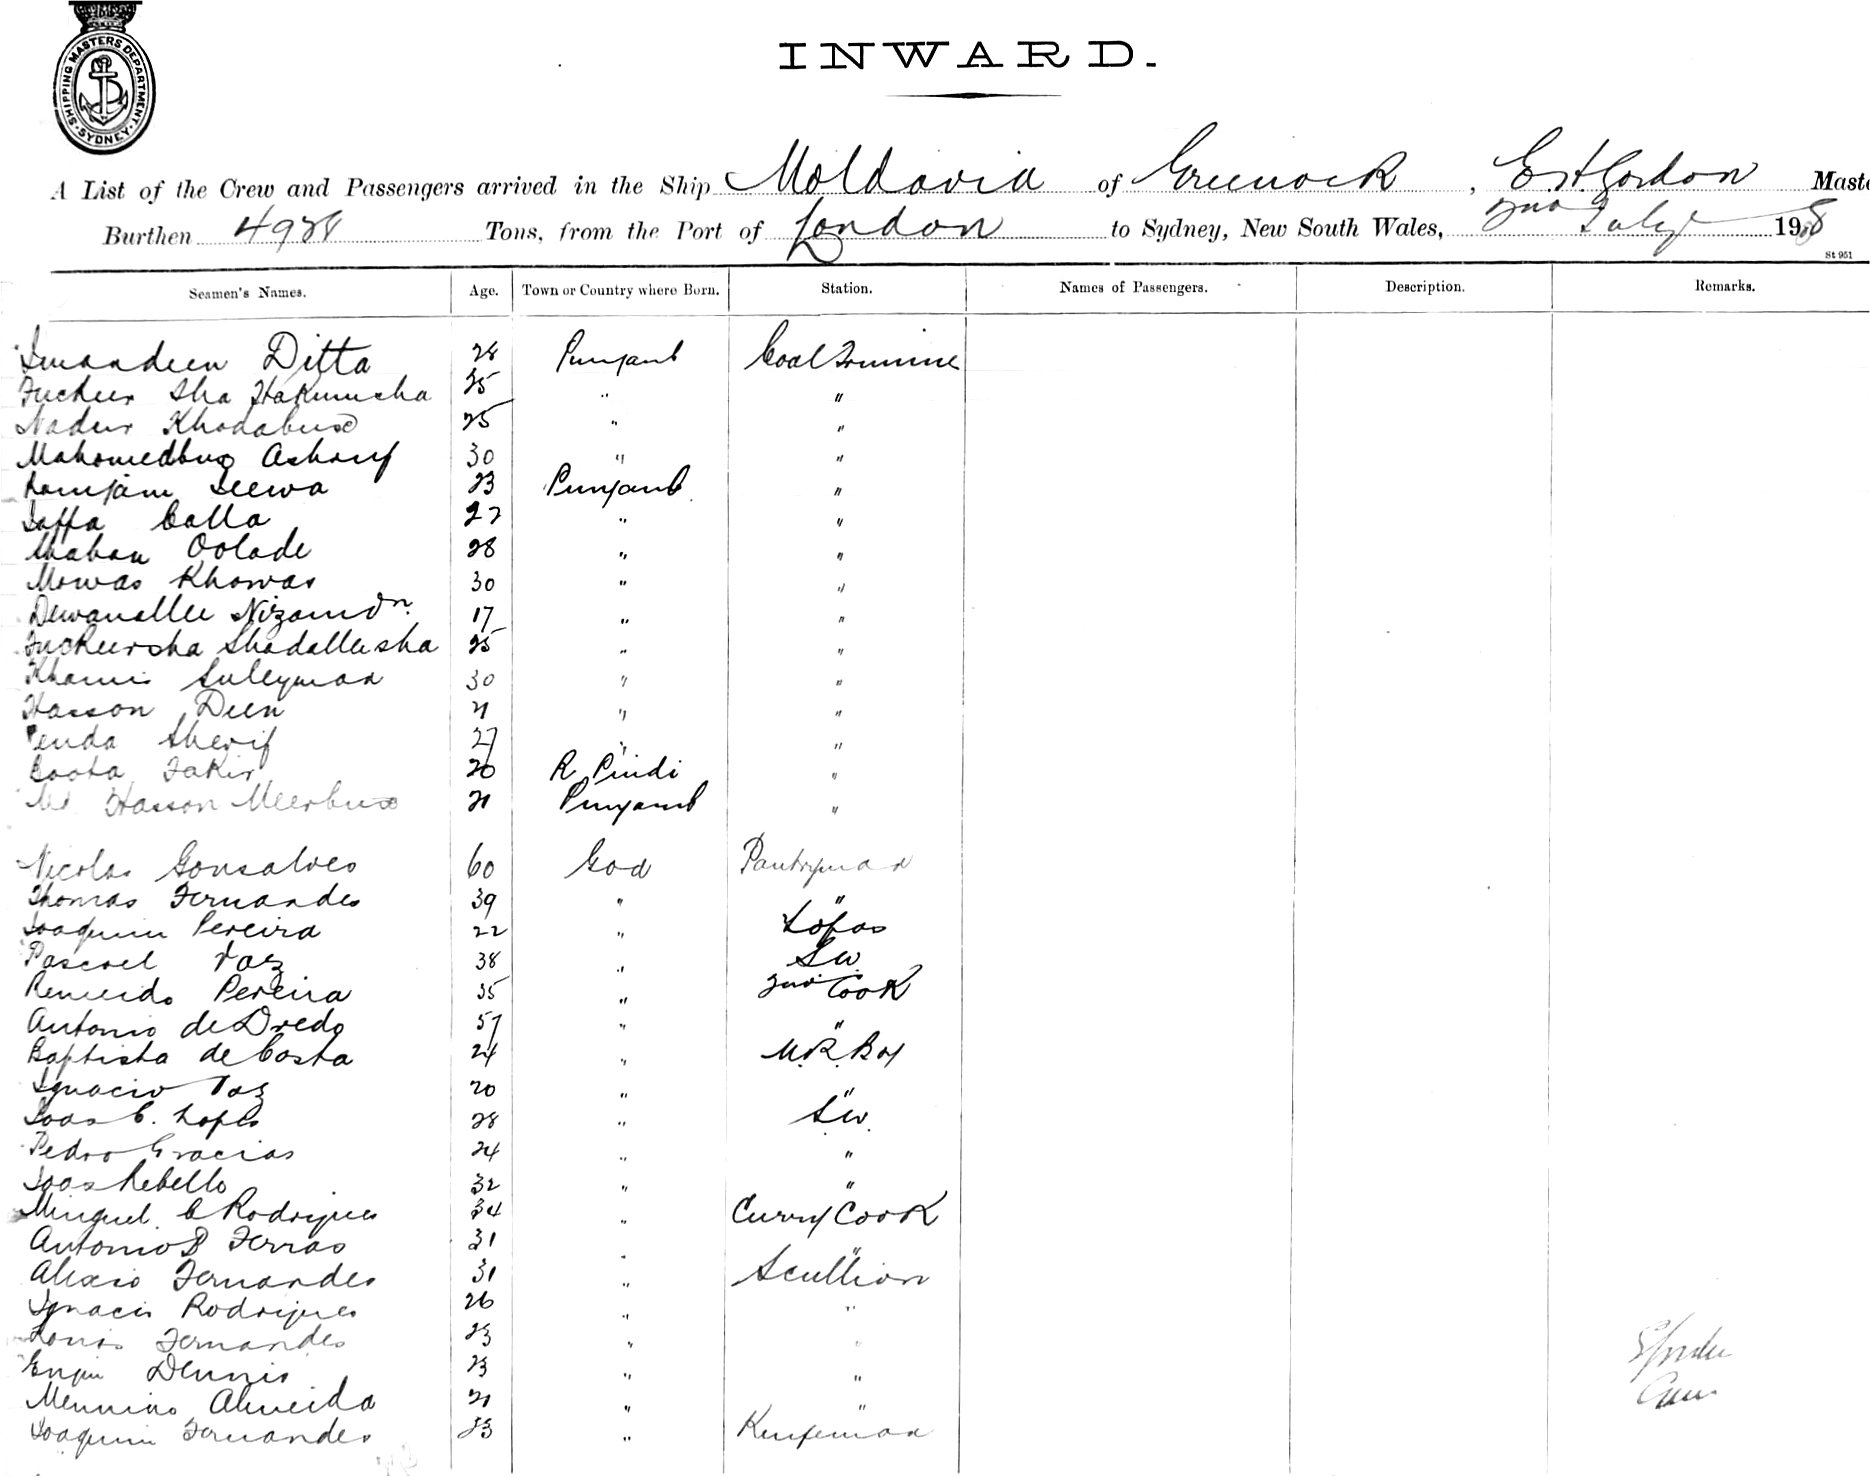 SHIPPING MASTERS DEPARTMENT · SYDNEY ·
INWARD.
A List of the Crew and Passengers arrived in the Ship Moldavia of Greenock, E. H. Gordon Maste
Burthen 4928 Tons, from the Port of London to Sydney, New South Wales, 2nd July 1908
St 951
Seamen's Names. Age. Town or Country where Born. Station. Names of Passengers. Description. Remarks.
Imandeen Ditta 28 Punjaub Coal Trimmer
Fucheer Sha Hakumsha 25 " "
Nadur Khodabux 25 " "
Mahomedbux Ashruf 30 " "
Ramjam Jeewa 23 Punjaub "
Calla 27 " "
Oolade 28 " "
Mowas Khowas 30 " "
Dewanallee Nizamdn. 17 " "
Fucheersha Shadallesha 25 " "
Khamis Suleyman 30 " "
Hasson Deen 21 " "
Sherif 27 " "
Boota Fakir 20 R. Pindi "
Md Hasson Meerbux 21 Punjaub "
Nicolas Gonsalves 60 Goa Pantryman
Thomas Fernandes 39 " "
Joaquim Pereira 22 " Topas
Pascoel Vaz 38 " S.W.
Pereira 35 " 2nd Cook
Antonio de 57 " "
Baptista de Costa 24 " M.R. Boy
Ignacio Vaz 20 " "
Joao C. Lopes 28 " S.W.
Pedro Gracias 24 " "
Joao Rebello 32 " "
Minguel C Rodrigues 34 " Curry Cook
Antonio B Ferrao 31 " "
Alexio Fernandes 31 " Scullion
Ignacio Rodrigues 26 " "
Fernandes 23 " "
Dennis 23 " "
Almeida 21 " "
Joaquim Fernandes 23 "